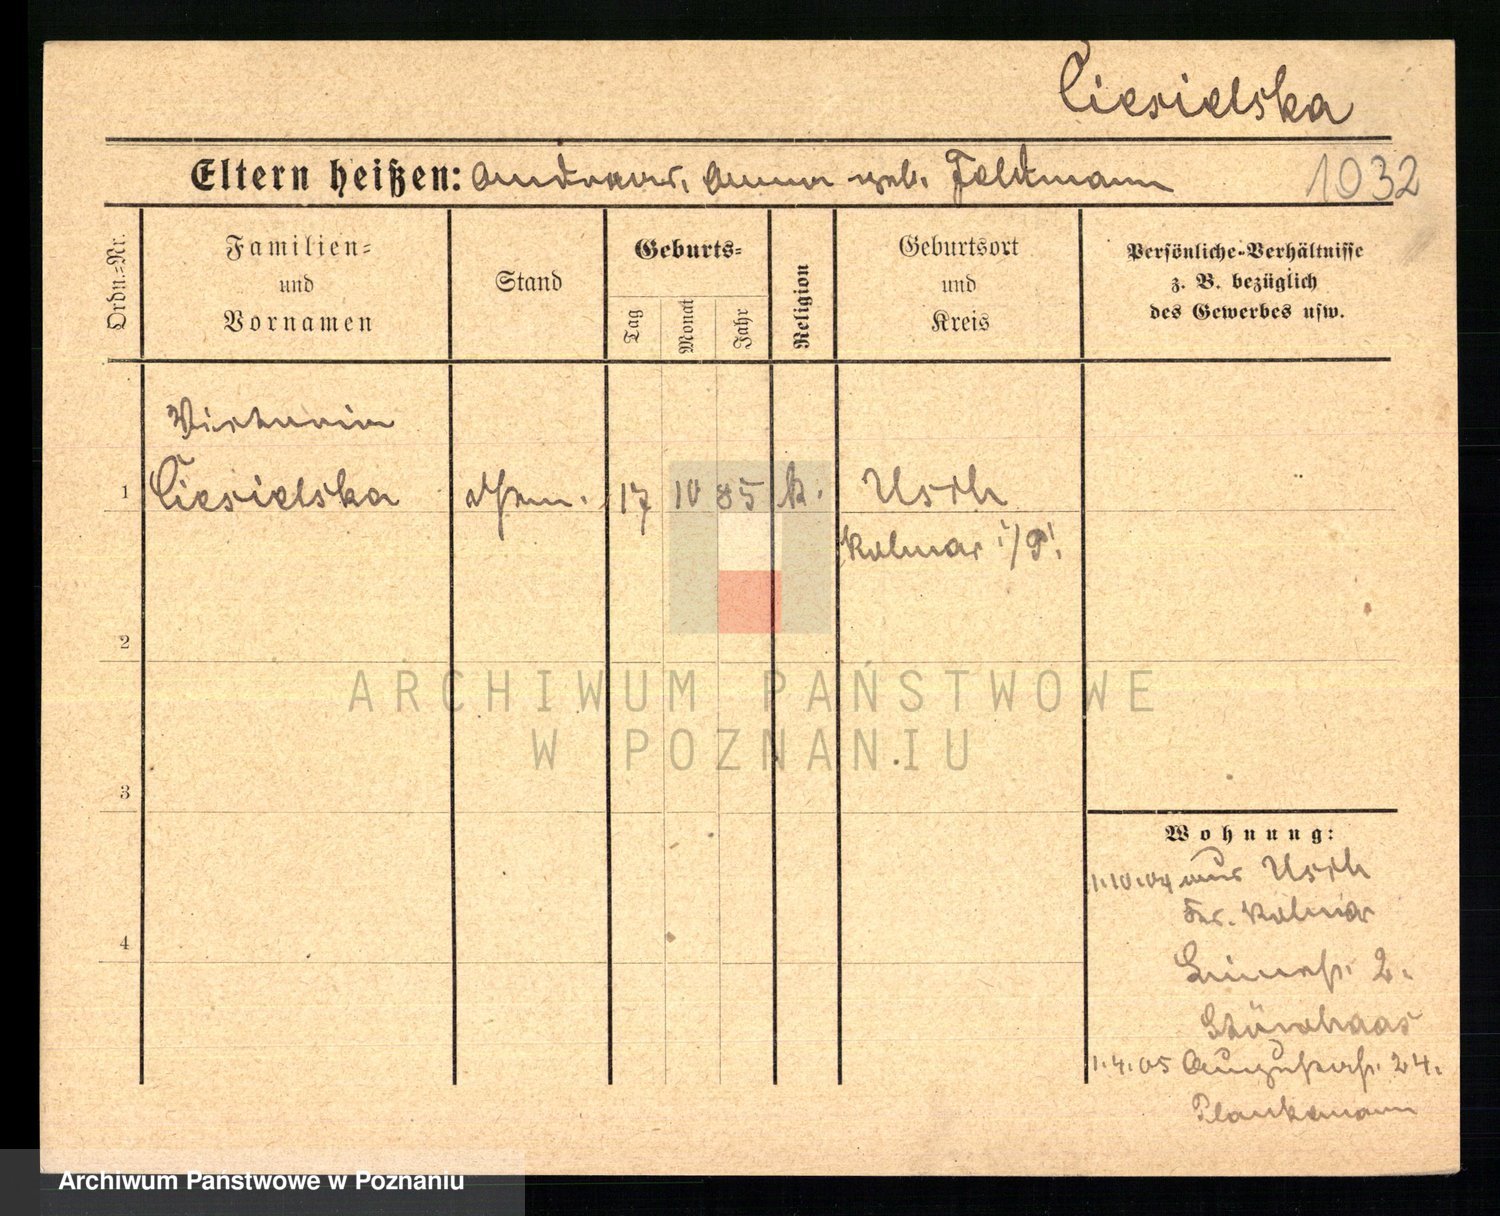 Ciesielska
Eltern heißen: Andreas, Anna geb. Feldmann 1032
Ordn.=Nr.
Familien=
und
Vornamen
Stand
Geburts=
Tag
Monat
Jahr
Religion
Geburtsort
und
Kreis
Persönliche=Verhältnisse
z. B. bezüglich
des Gewerbes usw.
Victoria
1 Ciesielska 17 10 85 k. Usch
Kolmar i/P.
2
ARCHIWUM PAŃSTWOWE
W POZNANIU
3
Wohnung:
1.10.04 aus Usch
Kolmar
2.
4
1.4.05 Augustastr. 24.
Plankemann
Archiwum Państwowe w Poznaniu